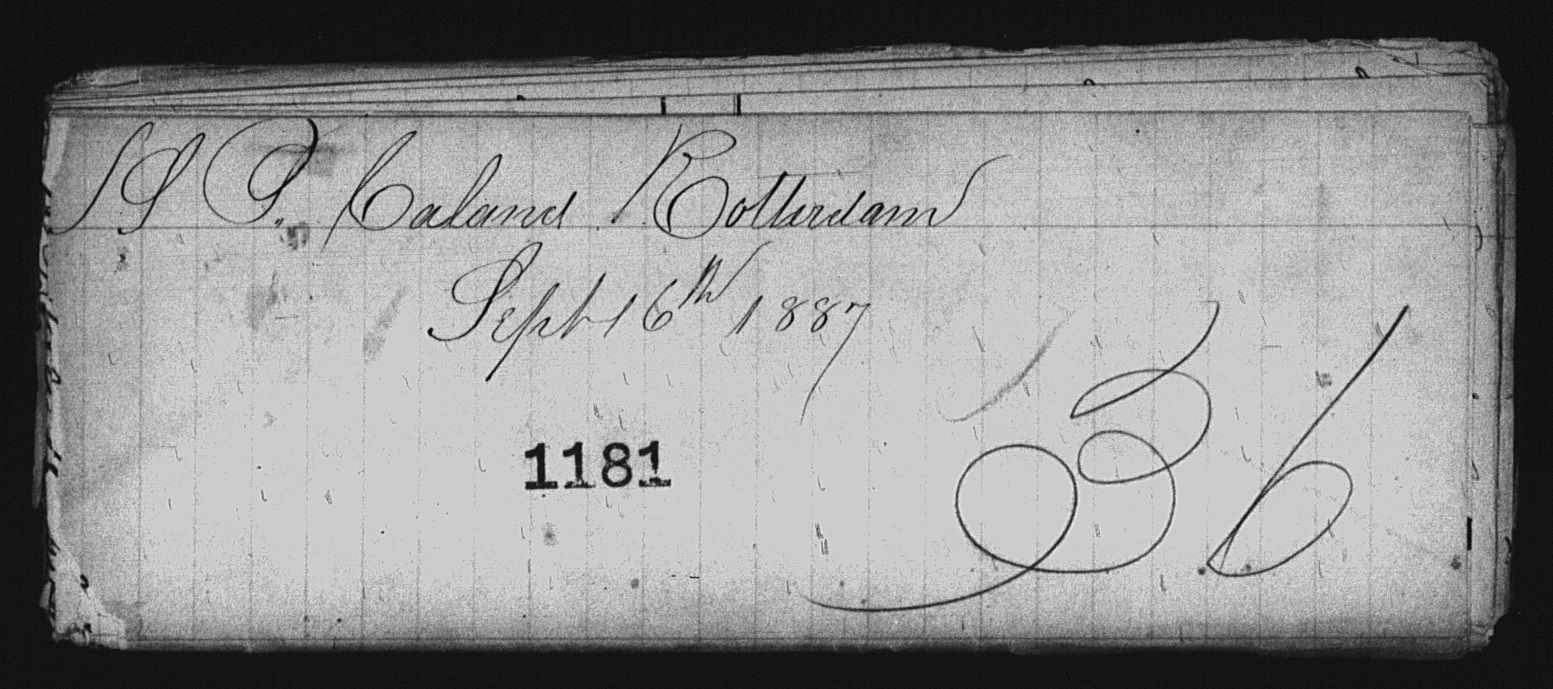 SS P. Caland Rotterdam
Sept 16th 1887
1181
36